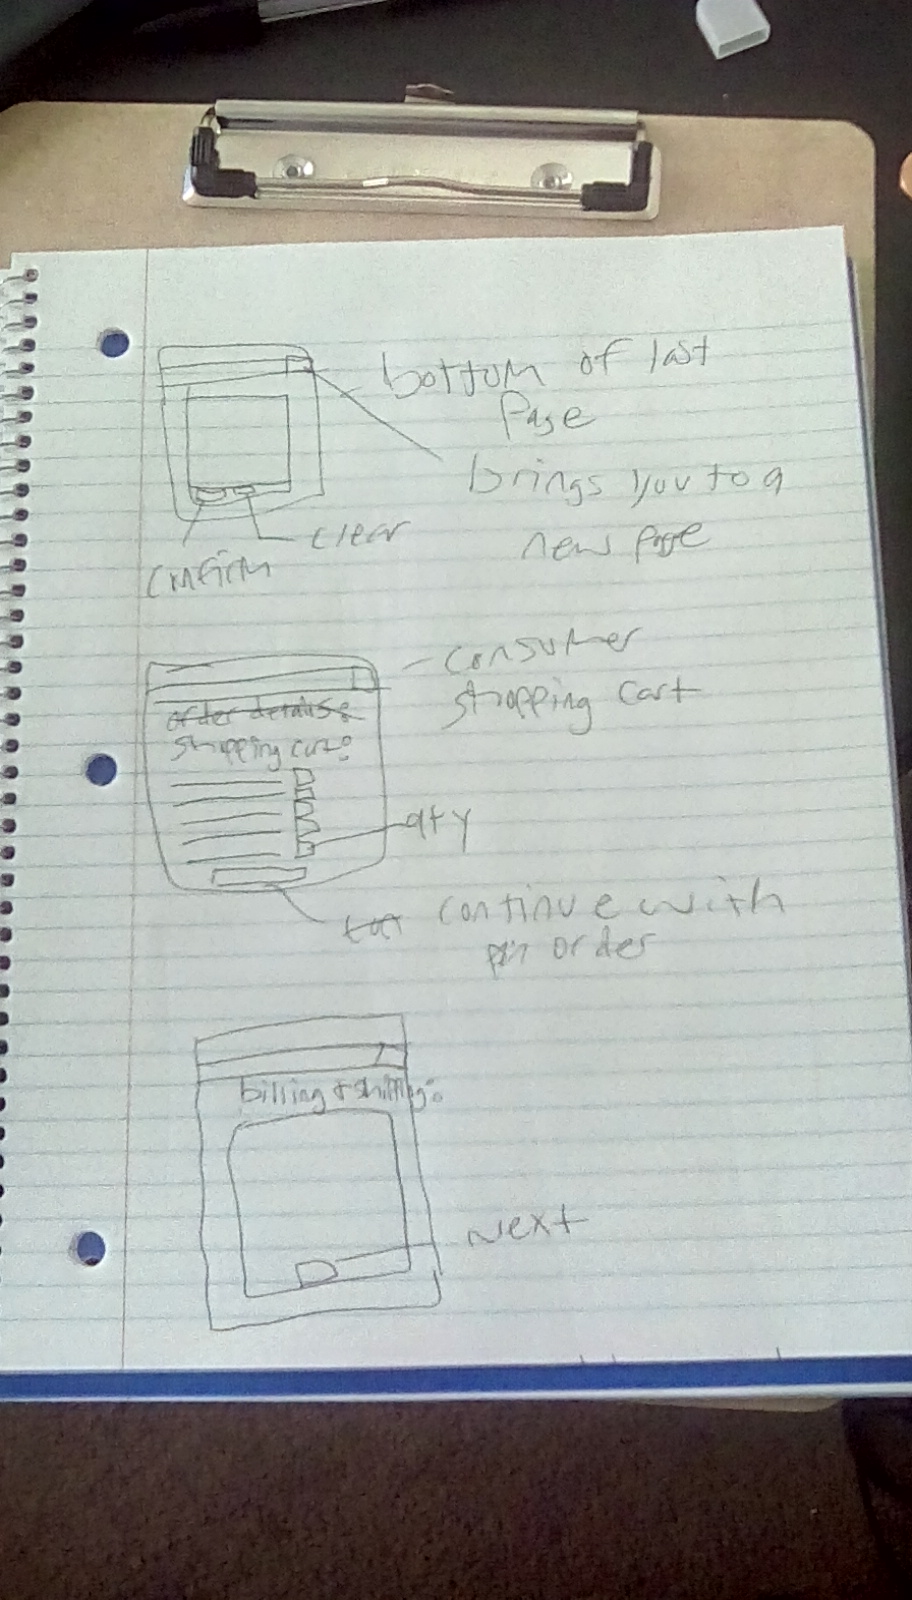 bottom of last
Page
brings you to a
new page
clear
confirm
consumer
shopping cart
order details:
shopping cart:
qty
continue with
order
billing + shipping:
Next